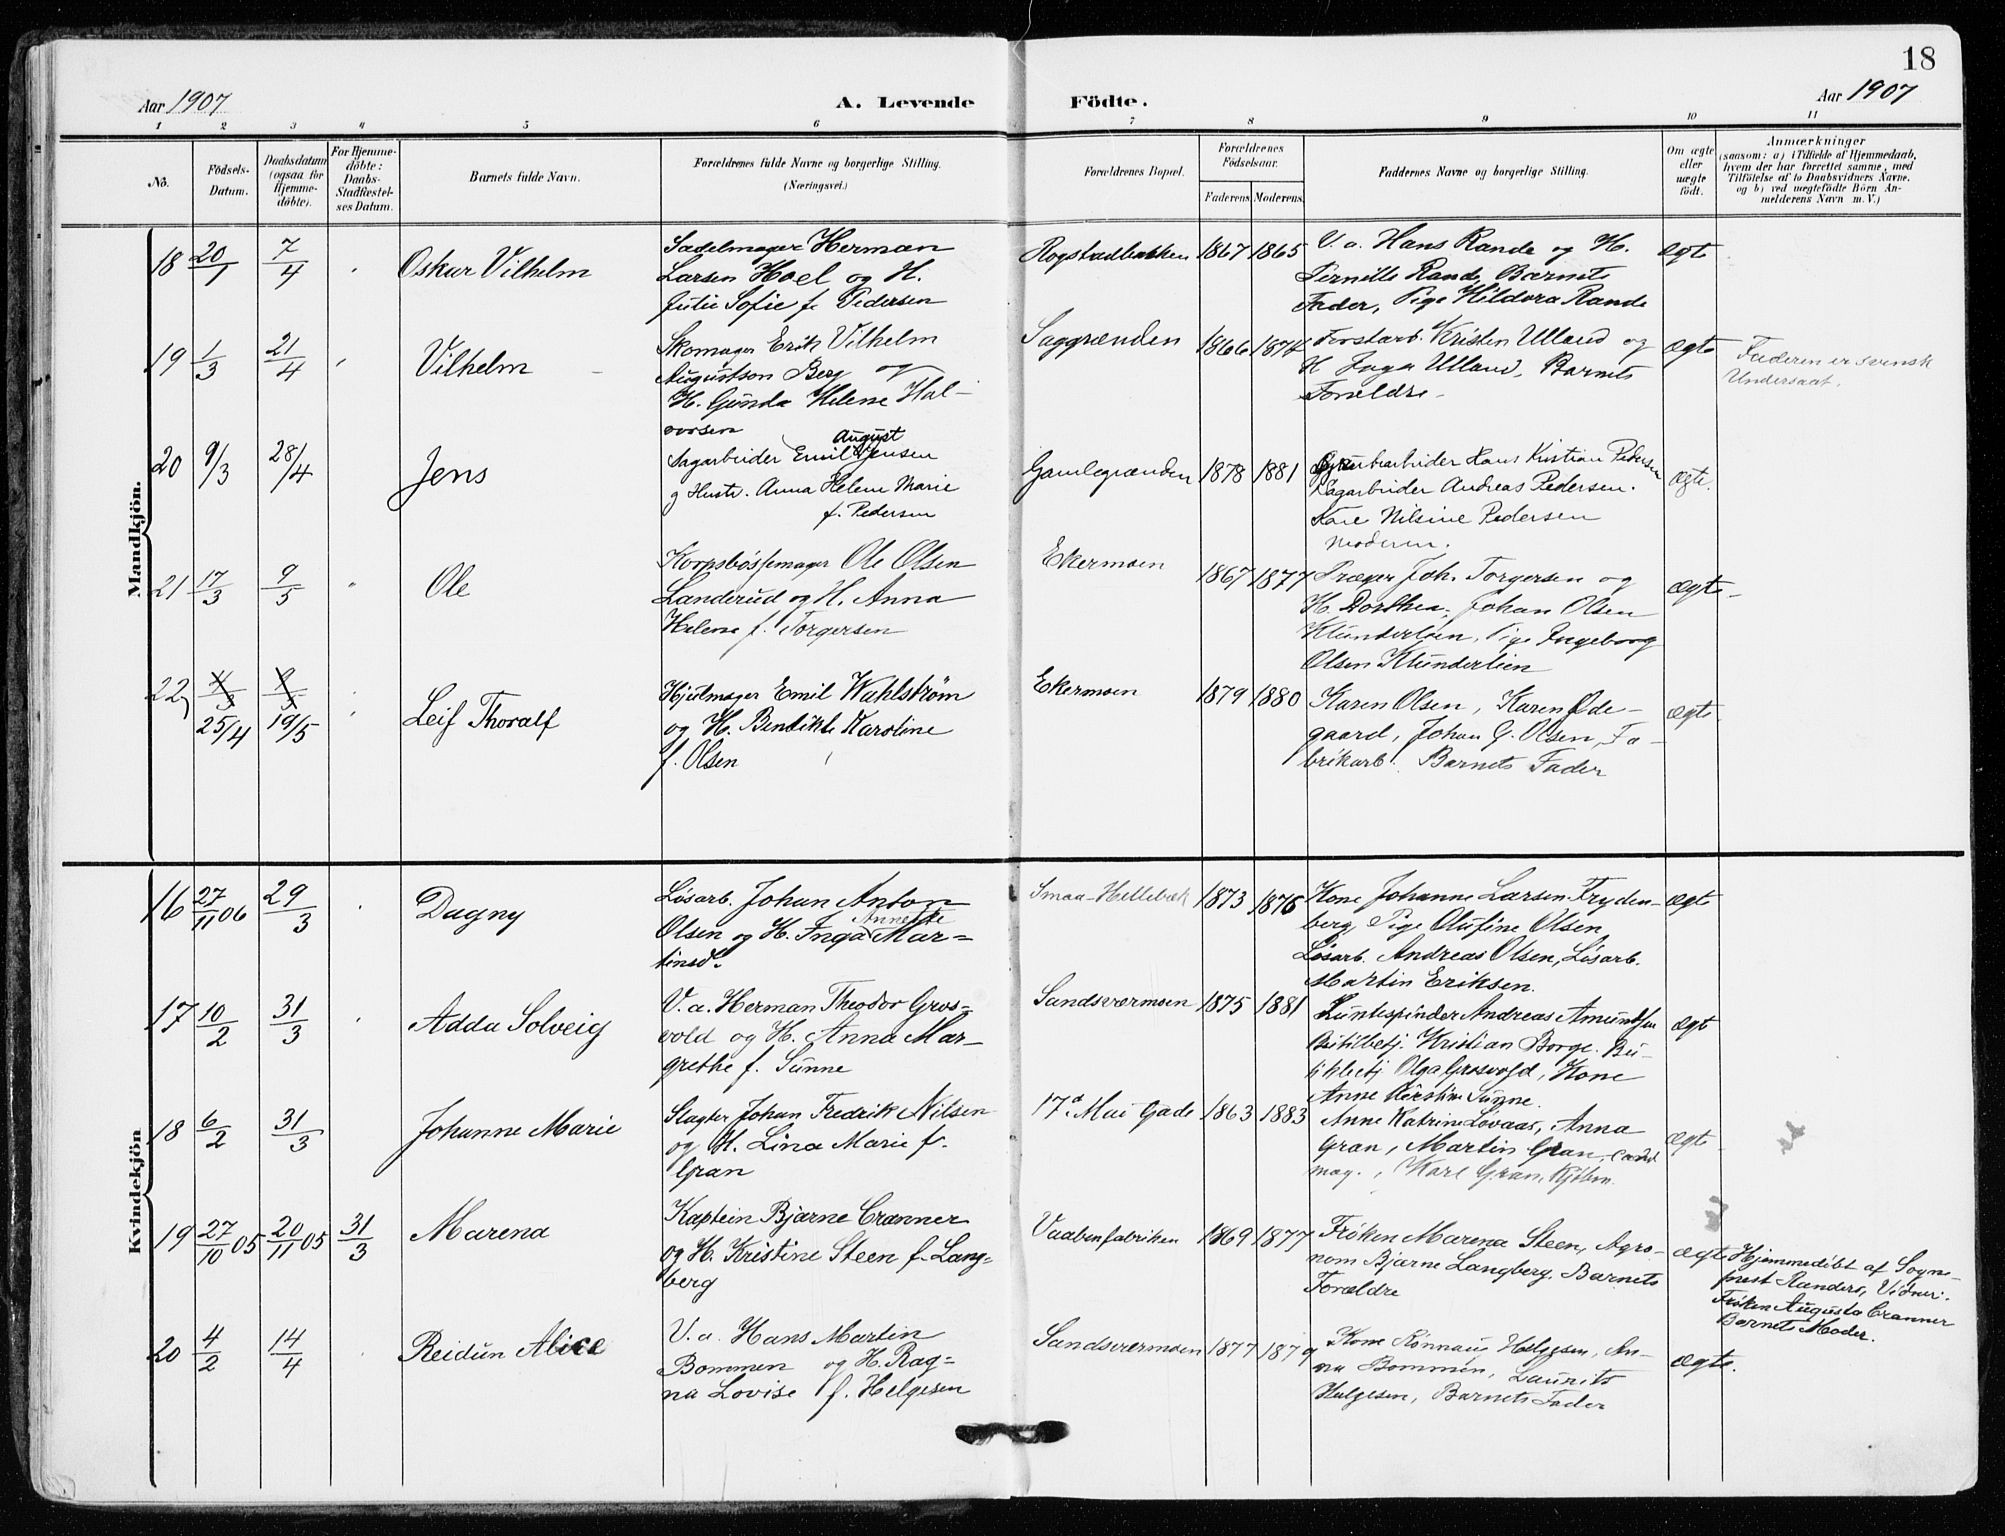 18
Aar 1907
A. Levende Födte.
Aar 1907
1 2 3 4 5 6 7 8 9 10 11
No.
Födsels-
Datum.
Daabsdatum
(ogsaa for
Hjemme-
döbte).
For Hjemme-
döbte:
Daabs-
Stadfæstel-
ses Datum.
Barnets fulde Navn.
Forældrenes fulde Navne og borgerlige Stilling.
(Næringsvei.)
Forældrenes Bopæl.
Forældrenes
Födselsaar.
Faderens Moderens
Faddernes Navne og borgerlige Stilling.
Om ægte
eller
uægte
födt.
Anmærkninger
(saasom: a) i Tilfælde af Hjemmedaab,
hvem der har forrettet samme, med
Tilföielse af to Daabsvidners Navne,
og b) ved uægtefödte Börn An-
melderens Navn m. V.)
Mandkjön.
18 20/1 7/4 Oskar Vilhelm
Sadelmager Herman
Larsen Hoel og H.
Julie Sofie f. Pedersen
Rogstadbakken 1867 1865
V. a. Hans Rande og H.
Pernille Rande, Barnets
Fader, Pige Hildora Rande
ægte
19 1/3 21/4 Vilhelm
Skomager Erik Vilhelm
Augustson Berg og
H. Gunda Helene Hal-
vorsen
Saggrænden 1866 1874
Forstarb. Kristen Ulland og
H Inga Ulland, Barnets
Forældre
ægte
Faderen er svensk
Undersaat.
20 9/3 28/4 Jens
August
Sagarbeider Emil Jensen
g Hustr. Anna Helene Marie
f. Pedersen
Gamlegrænden 1878 1881
Hans Kristian Pedersen
Sagarbeider Andreas Pedersen.
Kone Nilsine Pedersen
Moderen.
ægte.
21 17/3 9/5 Ole
Korpsbøssemager Ole Olsen
Landerud og H. Anna
Helene f. Torgersen
Ekermoen 1867 1877
Træger Joh. Torgersen og
H. Dorthea, Johan Olsen
Klunderlien, Pige Ingeborg
Olsen Klunderlien
ægte
22, 25/4 19/5 Leif Thoralf
Hjulmager Emil Wahlstrøm
og H. Bendikte Karoline
f. Olsen
Ekermoen 1879 1880
Karen Olsen, Karen Øde-
gaard, Johan G. Olsen, Fa-
brikarb. Barnets Fader
ægte
Kvindekjön
16 27/11 06 29/3 Dagny
Løsarb. Johan Anton
Annette
Olsen og H. Inga Mar-
tinsd.
Smaa-Hellebæk 1873 1876
Kone Johanne Larsen Fryden-
berg, Pige Olufine Olsen
Løsarb. Andreas Olsen, Løsarb.
Martin Eriksen.
ægte
17 10/2 31/3 Adda Solveig
V. a. Herman Theodor Gros-
vold og H. Anna Mar-
grethe f. Sunne
Sandsværmoen 1875 1881
Luntespinder Andreas Amundsen
Kristian Borge. Bu-
Olga Grosvold, Kone
Anne Kirstine Sunne.
ægt
18 6/2 31/3 Johanne Marie
Slagter Johan Fredrik Nilsen
og H. Lina Marie f.
Gran
17d Mai Gade 1863 1883
Anne Katrine Løvaas, Anna
Gran, Martin Gran, cand
mag., Karl Gran, Kjøbm.
ægte
19 27/10 05 20/11 05 31/3 Marena
Kaptein Bjarne Cranner
og H. Kristine Steen f. Lang-
berg
Vaabenfabriken 1869 1877
Frøken Marena Steen, Agro-
nom Bjarne Langberg, Barnets
Forældre
ægte
Hjemmedøbt af Sogne-
prest Randers, Vidner:
Frøken Augusta Cranner
Barnets Moder.
20 4/2 14/4 Reidun Alice
V. a. Hans Martin
Bommen og H. Rag-
na Lovise f. Helgesen
Sandsværmoen 1877 1879
Kone Rønnaug Helgesen, An-
na Bommen, Laurits
Helgesen, Barnets Fader
ægte.